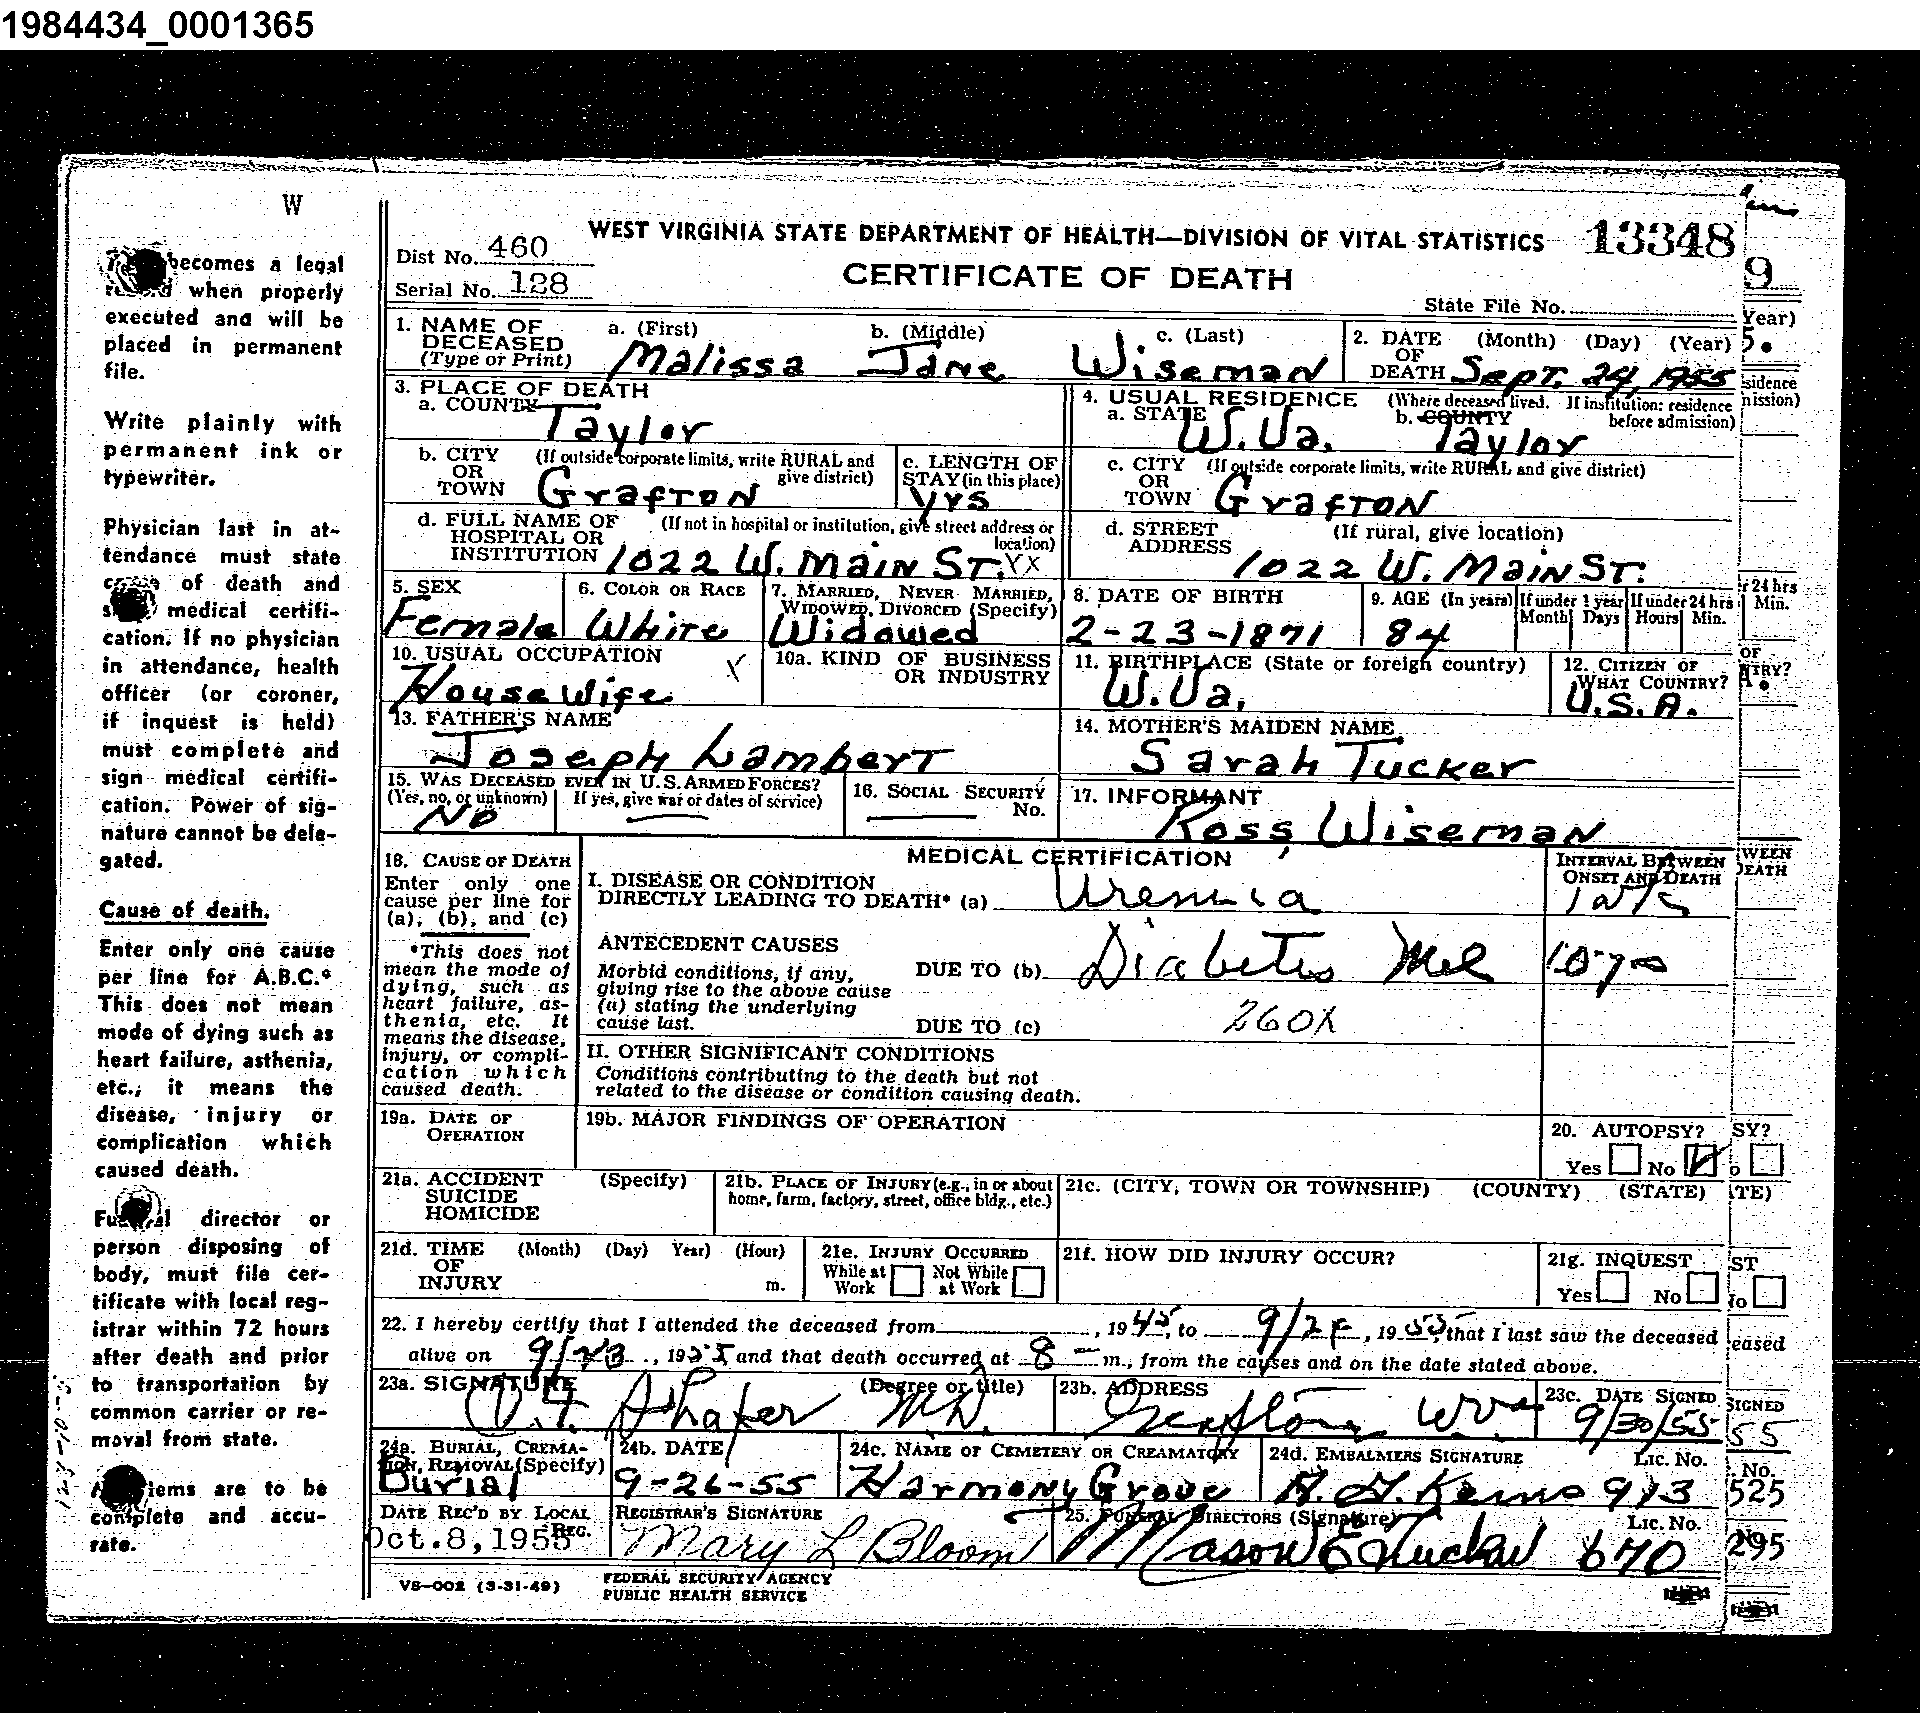 1984434_0001365
W
becomes a legal
when properly
executed and will be
placed in permanent
file.
Write plainly with
permanent ink or
typewriter.
Physician last in at-
tendance must state
of death and
medical certifi-
cation. If no physician
in attendance, health
officer (or coroner,
if inquest is held)
must complete and
sign medical certifi-
cation. Power of sig-
nature cannot be dele-
gated.
Cause of death.
Enter only one cause
per line for A.B.C.*
This does not mean
mode of dying such as
heart failure, asthenia,
etc., it means the
disease, injury or
complication which
caused death.
director or
person disposing of
body, must file cer-
tificate with local reg-
istrar within 72 hours
after death and prior
to transportation by
common carrier or re-
moval from state.
are to be
complete and accu-
rate.
Dist No. 460
Serial No. 128
WEST VIRGINIA STATE DEPARTMENT OF HEALTH—DIVISION OF VITAL STATISTICS 13348
CERTIFICATE OF DEATH
State File No.
1. NAME OF DECEASED (Type or Print) a. (First) b. (Middle) c. (Last)
Malissa Jane Wiseman
2. DATE OF DEATH (Month) (Day) (Year)
Sept. 24, 1955
3. PLACE OF DEATH
a. COUNTY Taylor
4. USUAL RESIDENCE (Where deceased lived. If institution: residence before admission)
a. STATE W.Va. b. COUNTY Taylor
b. CITY OR TOWN (If outside corporate limits, write RURAL and give district)
Grafton
c. LENGTH OF STAY (in this place)
yrs
c. CITY OR TOWN (If outside corporate limits, write RURAL and give district)
Grafton
d. FULL NAME OF HOSPITAL OR INSTITUTION (If not in hospital or institution, give street address or location)
1022 W. Main St. YX
d. STREET ADDRESS (If rural, give location)
1022 W. Main St.
5. SEX Female
6. COLOR OR RACE White
7. MARRIED, NEVER MARRIED, WIDOWED, DIVORCED (Specify) Widowed
8. DATE OF BIRTH 2-23-1871
9. AGE (In years) 84
If under 1 year Month Days
If under 24 hrs Hours Min.
10. USUAL OCCUPATION Housewife X
10a. KIND OF BUSINESS OR INDUSTRY
11. BIRTHPLACE (State or foreign country) W.Va.
12. CITIZEN OF WHAT COUNTRY? U.S.A.
13. FATHER'S NAME Joseph Lambert
14. MOTHER'S MAIDEN NAME Sarah Tucker
15. WAS DECEASED EVER IN U.S. ARMED FORCES?
(Yes, no, or unknown) If yes, give war or dates of service)
No
16. SOCIAL SECURITY No.
17. INFORMANT Ross Wiseman
18. CAUSE OF DEATH
Enter only one
cause per line for
(a), (b), and (c)
*This does not
mean the mode of
dying, such as
heart failure, as-
thenia, etc. It
means the disease,
injury, or compli-
cation which
caused death.
MEDICAL CERTIFICATION
INTERVAL BETWEEN ONSET AND DEATH
I. DISEASE OR CONDITION
DIRECTLY LEADING TO DEATH* (a) Uremia 1 wk
ANTECEDENT CAUSES
Morbid conditions, if any,
giving rise to the above cause
(a) stating the underlying
cause last.
DUE TO (b) Diabetes Mel 10 yrs
DUE TO (c) 260X
II. OTHER SIGNIFICANT CONDITIONS
Conditions contributing to the death but not
related to the disease or condition causing death.
19a. DATE OF OPERATION
19b. MAJOR FINDINGS OF OPERATION
20. AUTOPSY?
Yes No
21a. ACCIDENT SUICIDE HOMICIDE (Specify)
21b. PLACE OF INJURY (e.g., in or about home, farm, factory, street, office bldg., etc.)
21c. (CITY, TOWN OR TOWNSHIP) (COUNTY) (STATE)
21d. TIME OF INJURY (Month) (Day) Year) (Hour) m.
21e. INJURY OCCURRED
While at Work Not While at Work
21f. HOW DID INJURY OCCUR?
21g. INQUEST
Yes No
22. I hereby certify that I attended the deceased from , 1945, to 9/24, 1955, that I last saw the deceased
alive on 9/23, 1955 and that death occurred at 8 m., from the causes and on the date stated above.
23a. SIGNATURE (Degree or title)
Shafer MD.
23b. ADDRESS Grafton W Va
23c. DATE SIGNED 9/30/55
24a. BURIAL, CREMATION, REMOVAL (Specify) Burial
24b. DATE 9-26-55
24c. NAME OF CEMETERY OR CREAMATORY Harmony Grove
24d. EMBALMERS SIGNATURE Lic. No.
Kerns 913
DATE REC'D BY LOCAL REG. Oct.8,1955
REGISTRAR'S SIGNATURE Mary L Bloom
25. FUNERAL DIRECTORS (Signature) Lic. No.
Mason E Tucker 670
VS-002 (3-31-49)
FEDERAL SECURITY AGENCY
PUBLIC HEALTH SERVICE